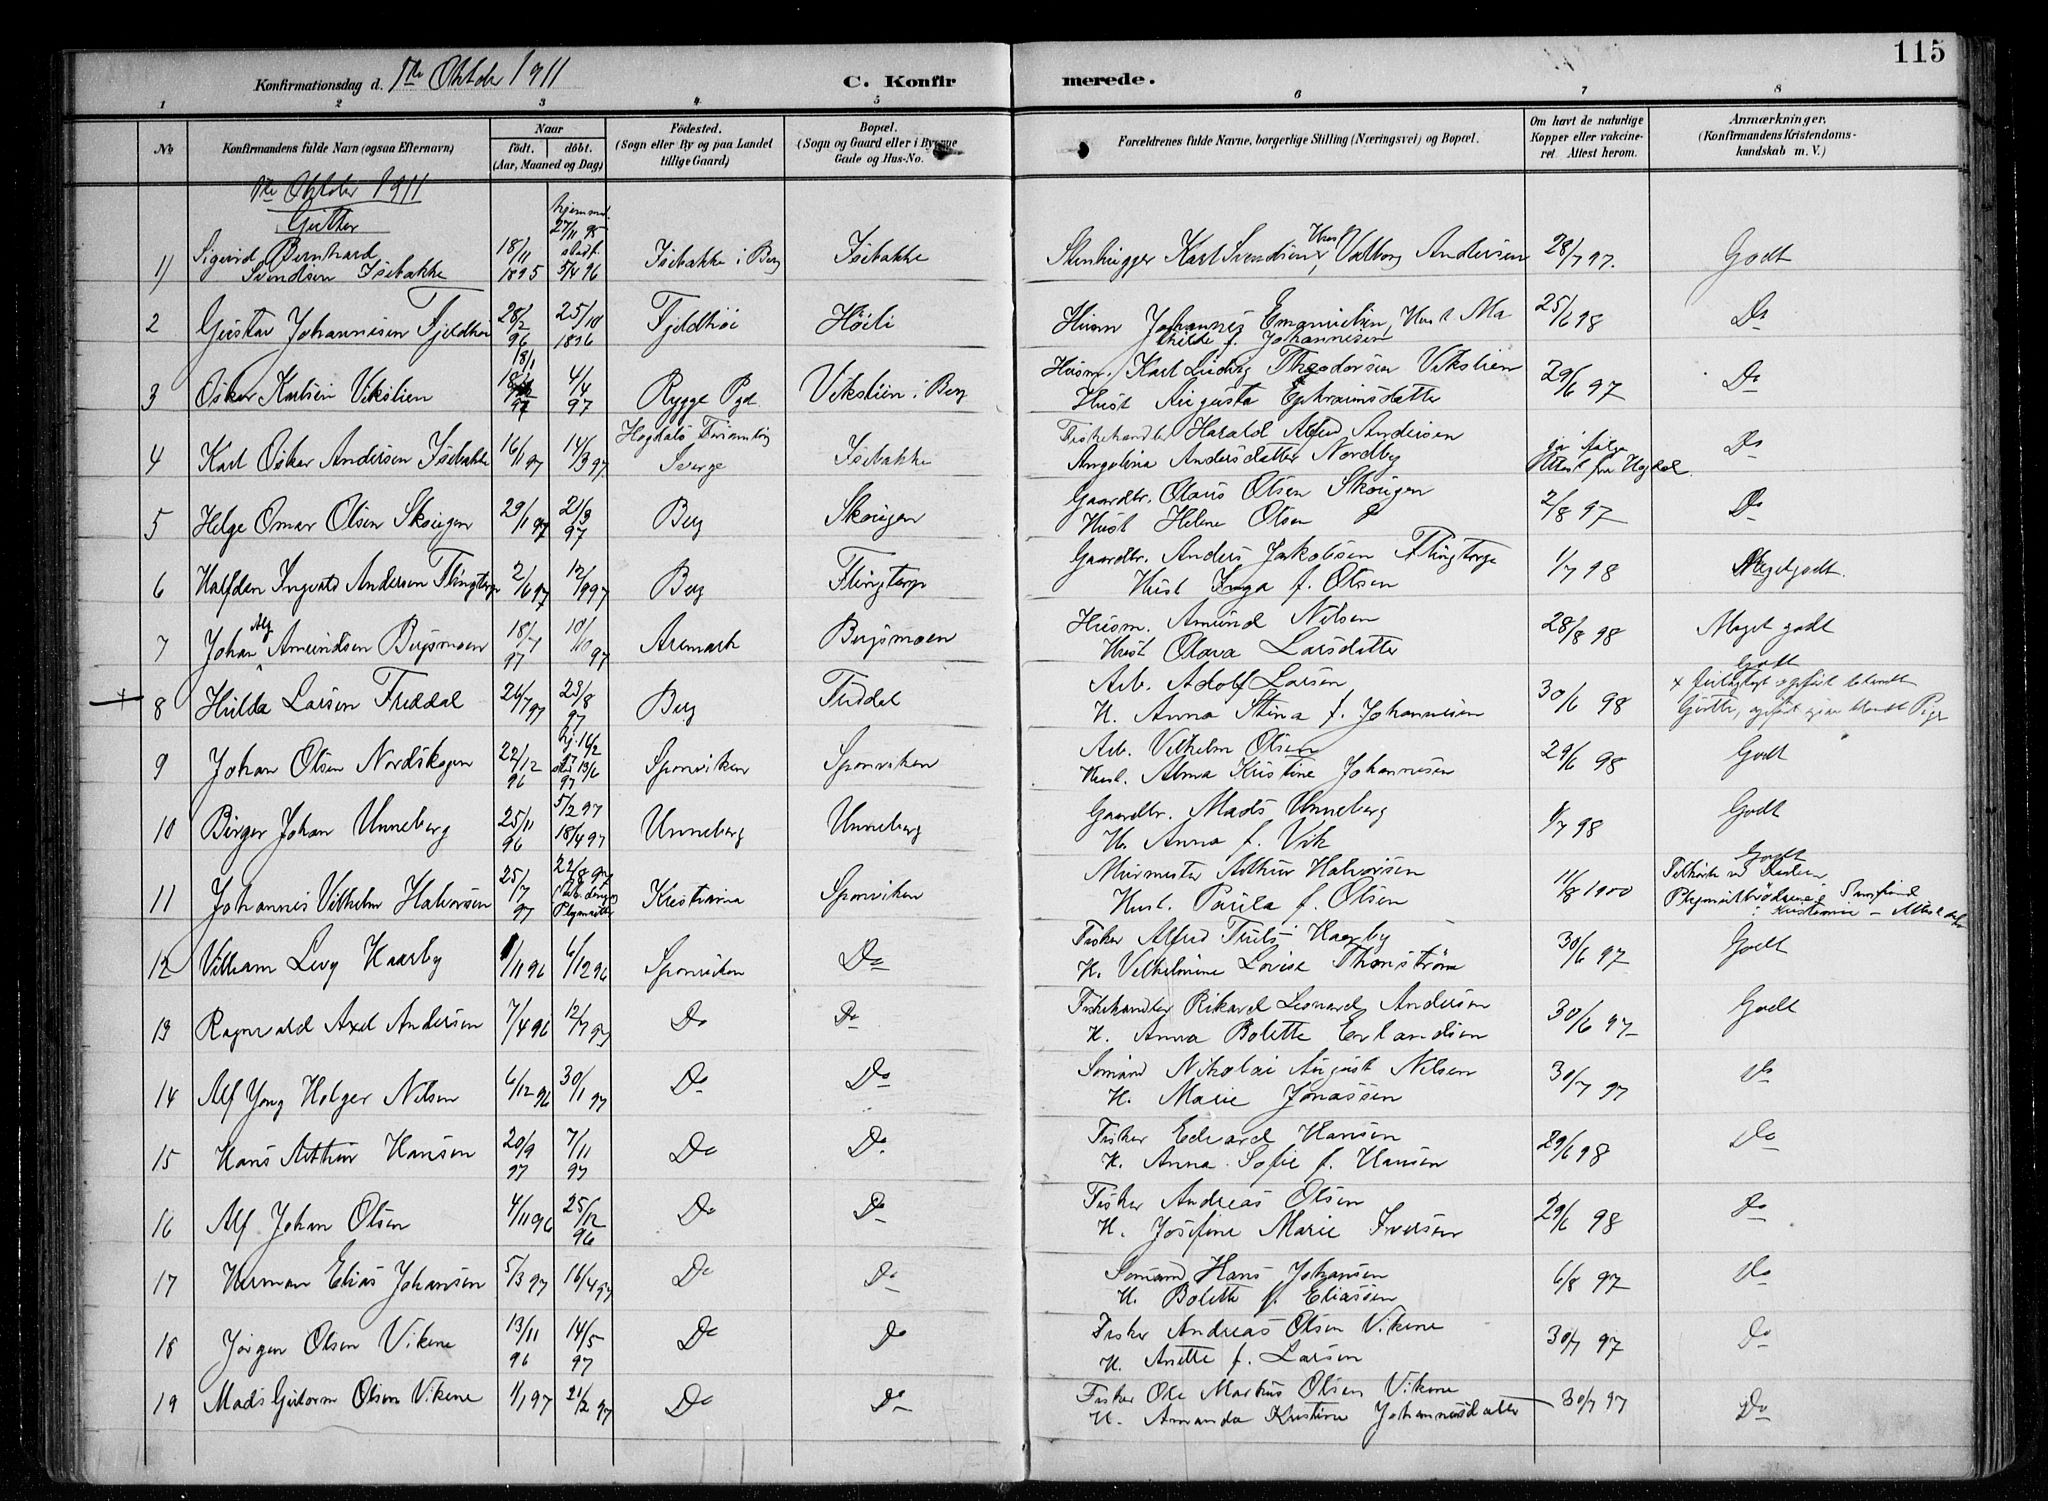 115
Konfirmationsdag d. 1ste Oktober 1911
C. Konfirmerede.
1 2 3 4 5 6 7 8
No
Konfirmandens fulde Navn (ogsaa Efternavn)
Naar
født. døbt.
(Aar, Maaned og Dag)
Fødested.
(Sogn eller By og paa Landet
tillige Gaard)
Bopæl.
(Sogn og Gaard eller i Byerne
Gade og Hus-No.
Forældrenes fulde Navne, borgerlige Stilling (Næringsvei) og Bopæl.
Om havt de naturlige
Kopper eller vakcine-
ret Attest herom.
Anmærkninger.
(Konfirmandens Kristendoms-
kundskab m. V.)
1ste Oktober 1911
Gutter
1) Sigurd Bernhard
Svendsen Isebakke 18/11 1895 hjemmed. 27/11 95 stadf. 5/4 96 Isebakke i Berg Isebakke Stenhugger Karl Svendsen, Hust. Valborg Andersen 28/7 97. Godt
2 Gustav Johannesen Fjeldhøi 28/2 96 25/10 1896 Fjeldhøi Høili Husm Johannes Emanuelsen, Hust Ma
thilde f. Johannesen 25/6 98 Do
3 Oskar Karlsen Vikslien 18/1 97 4/4 97 Rygge Pgd. Vikslien i Berg Husm. Karl Ludvig Theodorsen Vikslien
Hust Augusta Ephraimsdatter 29/6 97 Do
4 Karl Oskar Andersen Isebakke 16/1 97 14/3 97. Hogdals Forsamling
Sverge Isebakke Fiskehandler Harald Alfred Andersen
Angelina Andersdatter Nordby ja ifølge
Attest fra Hogdal. Do
5 Helge Omar Olsen Skougen 29/1 97 21/3 97 Berg Skougen Gaardbr. Olaus Olsen Skougen
Hust Helene Olsen 2/8 97 Do
6 Halfdan Ingvald Andersen Flingtorp 2/6 97 12/9 97 Berg Flingtorp Gaardbr. Anders Jakobsen Flingtorp
Hust Inga f. Olsen 1/7 98 Megetgodt.
7 Johan Alf Amundsen Bergsmoen 18/7 97 10/10 97 Aremark Bergsmoen Husm. Amund Nilsen
Hust Olava Larsdatter 28/8 98 Meget godt
8 Hulda Larsen Freddal 26/7 97 23/8 97 Berg Freddal Arb. Adolf Larsen
H. Anna Stina f. Johannesen 30/6 98 Godt
x feilagtigt opført blandt
Gutter, opført igjen blandt Piger
9 Johan Olsen Nordskogen 22/12 96 hj. 16/2 97 std 13/6 97 Sponviken Sponviken Arb. Vilhelm Olsen
Hust. Alma Kristine Johannesen 29/6 98 Godt
10 Birger Johan Unneberg 25/11 96 5/2 97 18/4 97 Unneberg Unneberg Gaardbr. Mads Unneberg
H. Anna f. Vik 1/7 98 Godt
11 Johannes Vilhelm Halvorsen 25/7 97 22/8 97 Kristiania Sponviken Murmester Arthur Halvorsen
Hust. Paula f. Olsen 11/8 1900 Godt
Kristiania – Attest
12 William Levy Kaarby 1/11 96 6/12 96 Sponviken Do Fisker Alfred Truls. Kaarby
H. Vilhelmine Lovise Thanström 30/6 97 Godt
13 Ragnvald Axel Andersen 7/4 96 12/7 97 Do Do Fiskehandler Rikard Leonard Andersen
H. Anna Bolette Erlandsen 30/6 97 Godt
14 Alf Yong Holger Nilsen 6/12 96 30/1 97 Do Do Sømand Nikolai August Nilsen
H. Marie Jonassen 30/7 97 Do
15 Hans Arthur Hansen 20/9 97 7/11 97 Do Do. Fisker Edvard Hansen
H. Anna Sofie f. Hansen 29/6 98 Do
16 Alf Johan Olsen 4/11 96 25/12 96 Do Do Fisker Andreas Olsen
H. Josefine Marie Iversen 29/6 98 Do
17 Herman Elias Johansen 5/3 97 16/4 97 Do Do Sømand Hans Johansen
H. Bolette f. Eliassen 6/8 97 Do
18 Jørgen Olsen Vikene 13/11 96 14/5 97 Do Do Fisker Andreas Olsen Vikene
H. Anette f. Larsen 30/7 97 Do
19 Mads Gudorm Olsen Vikene 1/1 97 21/2 97 Do Do Fisker Ole Markus Olsen Vikene
H. Amanda Kristine Johannesdatter 30/7 97 Do